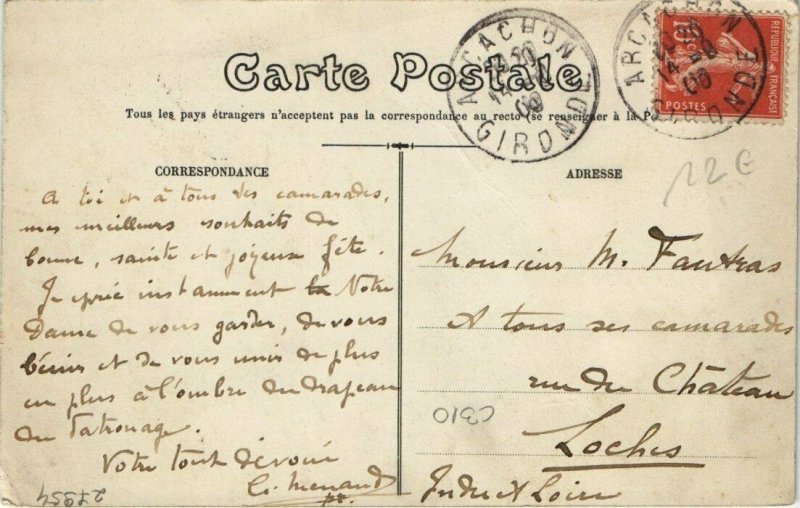 Carte Postale
Tous les pays étrangers n'acceptent pas la correspondance au recto (se renseigner à la P
ARCACHON
GIRONDE
ARCACHON
GIRONDE
10
POSTES
REPUBLIQUE FRANÇAISE
CORRESPONDANCE
A toi et à tous tes camarades,
mes meilleurs souhaits de
bonne, sainte et joyeux fête.
Je prie instamment la Notre
Dame de vous garder, de vous
bénir et de vous unir de plus
en plus à l'ombre du drapeau
du Patronage.
Votre tout dévoué
G. Menand
pr.
27954
ADRESSE
12 €
Monsieur M. Fautras
A tous ses camarades
rue du Château
C310
Loches
Indre et Loire